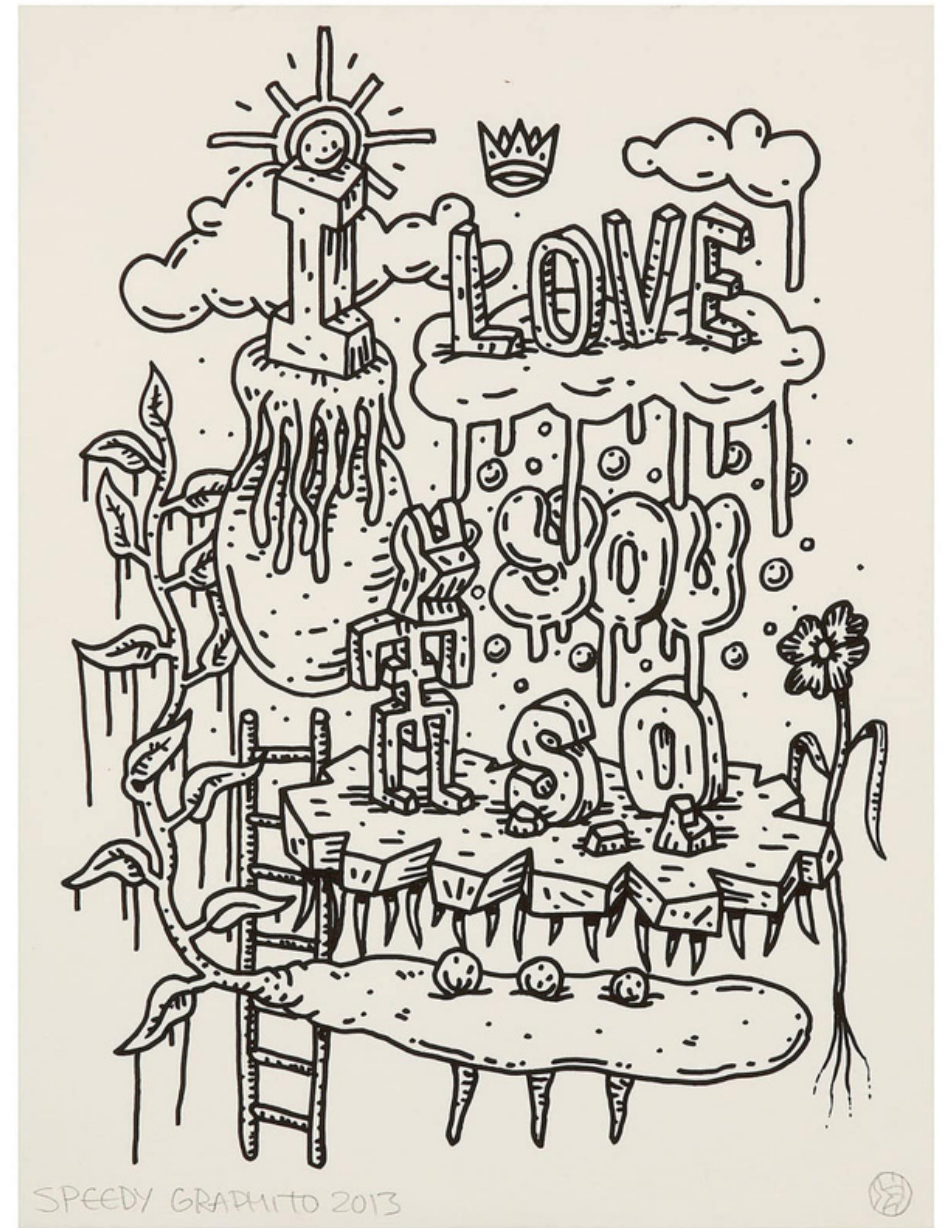 I LOVE
YOU
SO
SPEEDY GRAPHITO 2013